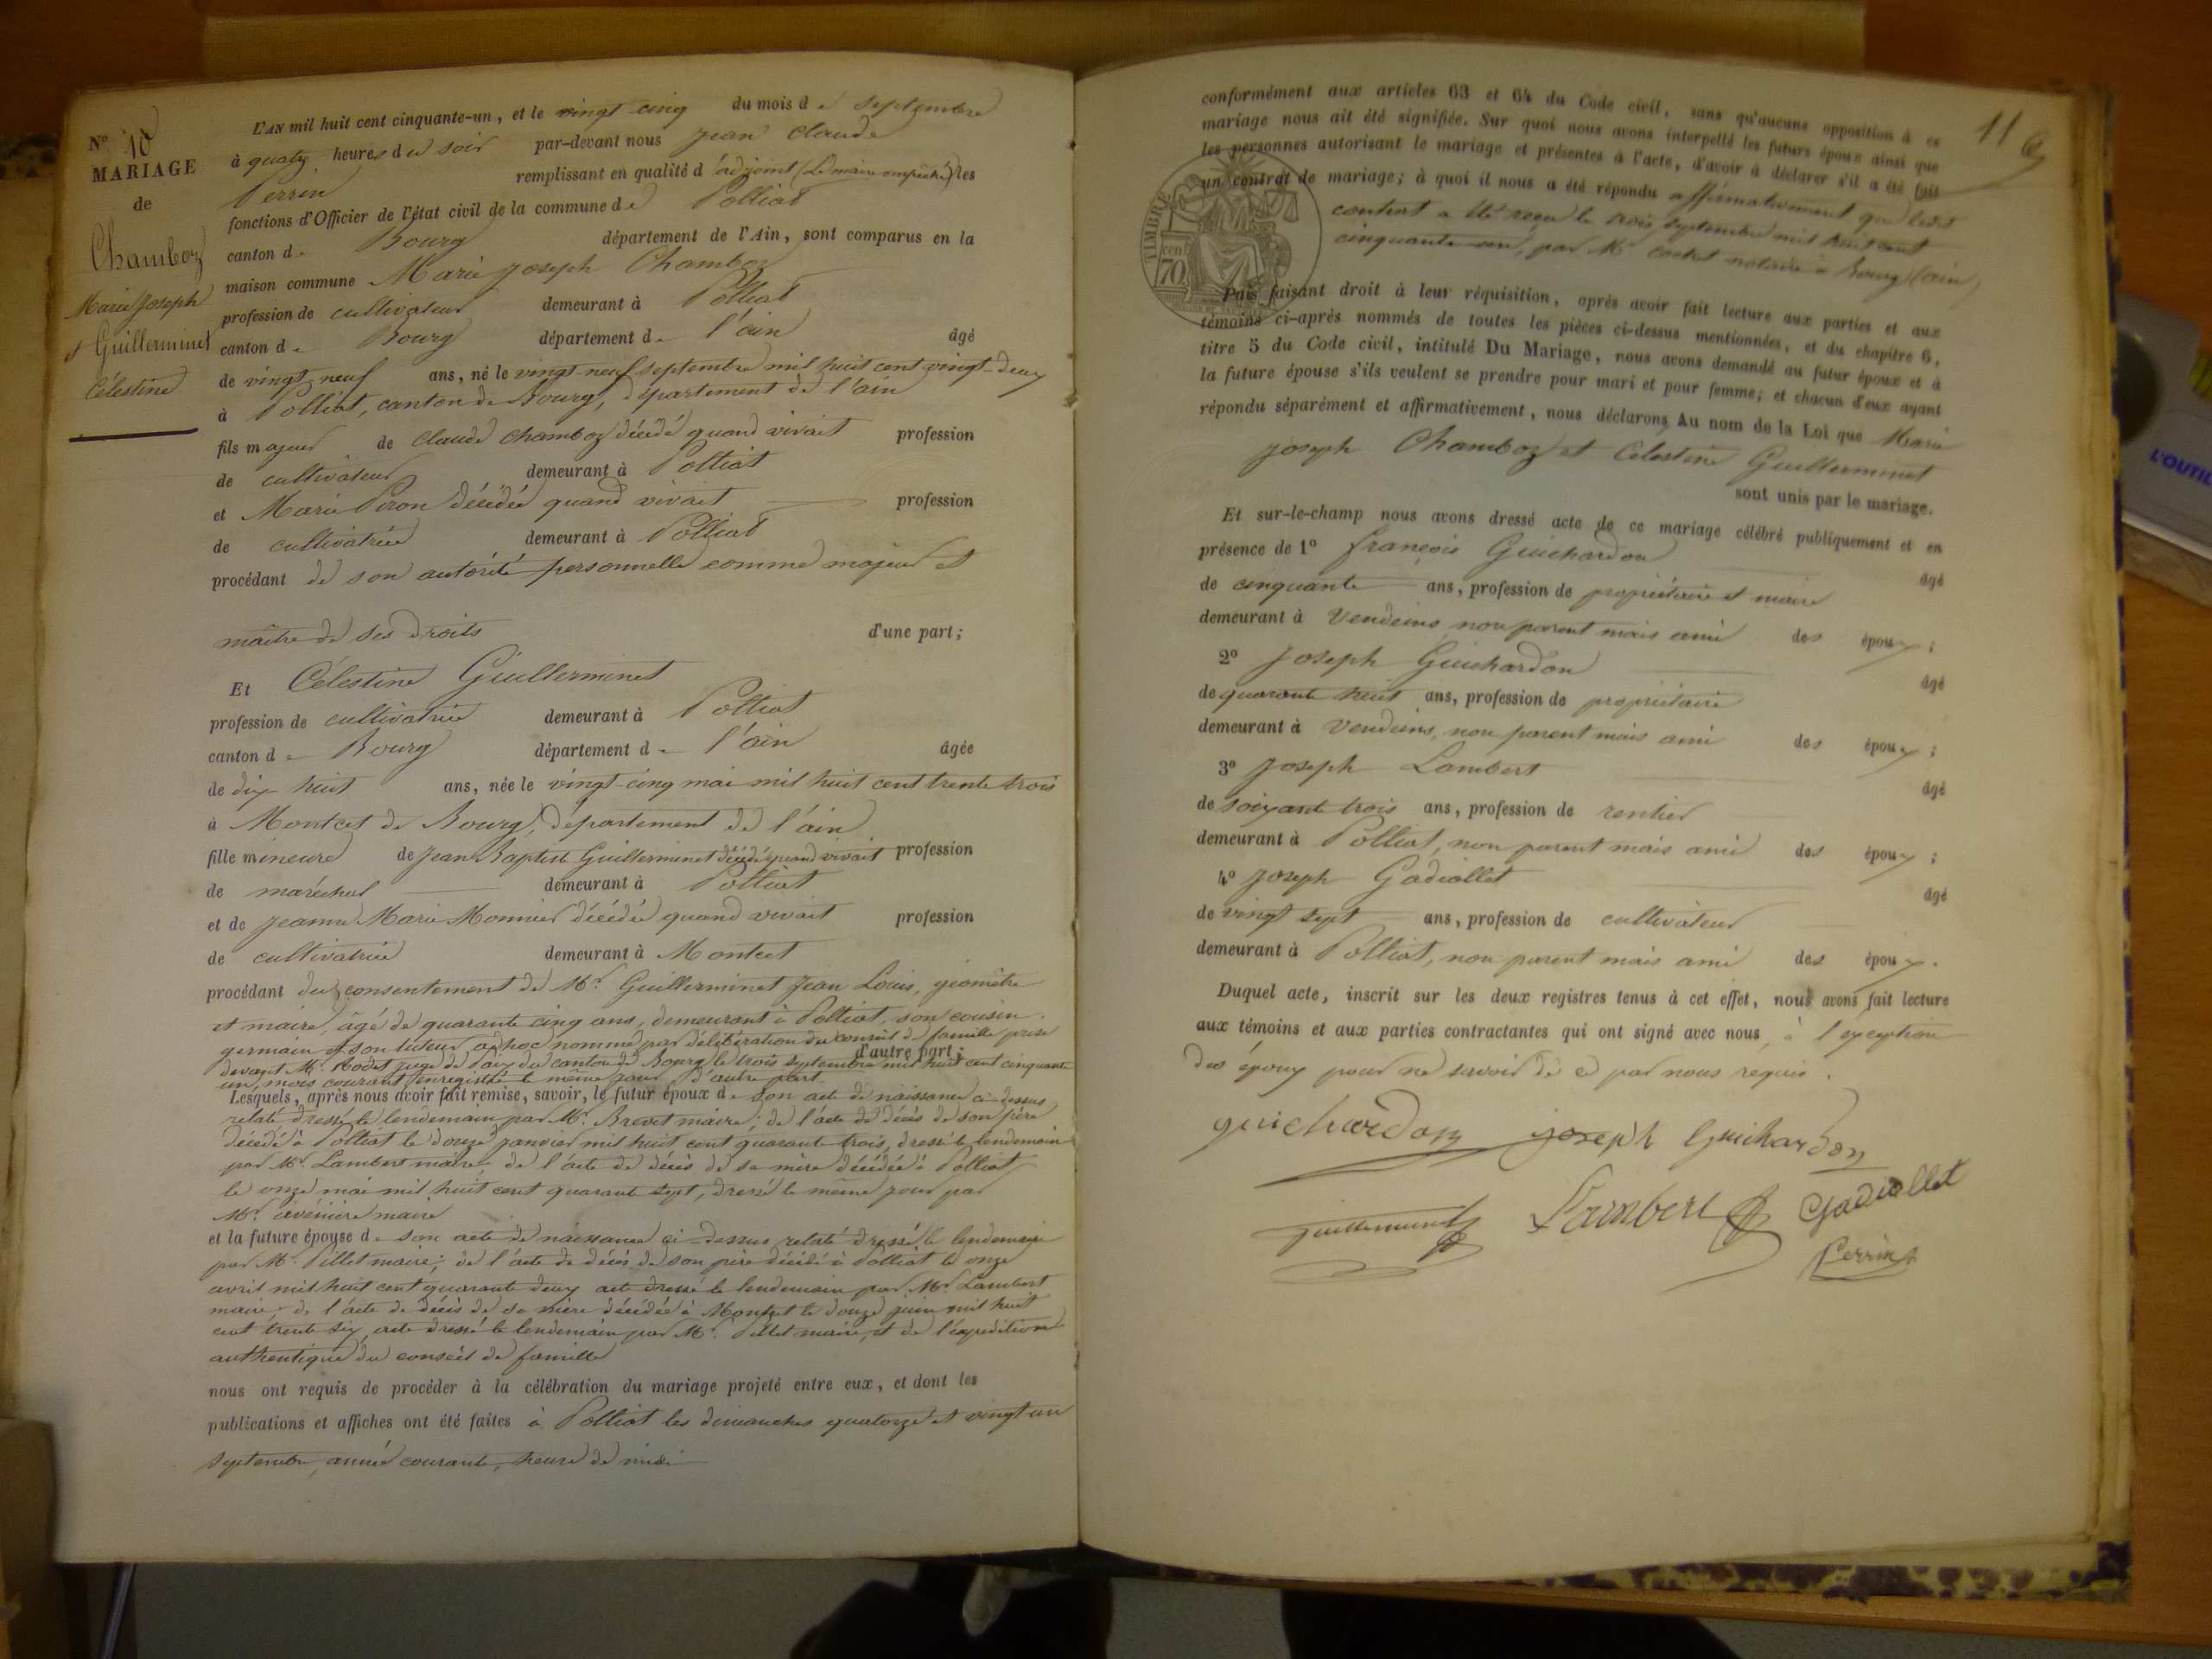 N° 10
MARIAGE
de
Chamboz
Marie Joseph
et Guillerminet
Célestine
L'AN mil huit cent cinquante-un, et le vingt cinq du mois de septembre
à quatre heures du soir par-devant nous Jean Claude
Perrin remplissant en qualité d'adjoint (Le maire empêché) les
fonctions d'Officier de l'état civil de la commune de Polliat
canton de Bourg département de l'Ain, sont comparus en la
maison commune Marie Joseph Chamboz
profession de cultivateur demeurant à Polliat
canton de Bourg département de l'ain âgé
de vingt neuf ans, né le vingt-neuf septembre mil huit cent vingt-deux
à Polliat, canton de Bourg, département de l'ain
fils majeur de Claude Chamboz décédé quand vivait profession
de cultivateur demeurant à Polliat
et Marie Piron décédée quand vivait profession
de cultivatrice demeurant à Polliat
procédant de son autorité personnelle comme majeur et
maître de ses droits d'une part;
Et Célestine Guillerminet
profession de cultivatrice demeurant à Polliat
canton de Bourg département de l'ain âgée
de dix huit ans, née le vingt-cinq mai mil huit cent trente trois
à Montcet de Bourg, département de l'ain
fille mineure de Jean Baptiste Guillerminet décédé quand vivait profession
de maréchal demeurant à Polliat
et de Jeanne Marie Monnier décédée quand vivait profession
de cultivatrice demeurant à Montcet
procédant du consentement de Mr. Guillerminet Jean Louis, géomètre
et maire, âgé de quarante cinq ans, demeurant à Polliat, son cousin
germain et son tuteur adhoc nommé par délibération du conseil de famille prise
devant Mr. Rodet juge de Paix du canton de Bourg le trois septembre mil huit cent cinquante
d'autre part;
un, mois courant enregistré le même jour d'autre part
Lesquels, après nous avoir fait remise, savoir, le futur époux de son acte de naissance ci-dessus
relaté dressé le lendemain par Mr. Brevet maire; de l'acte de décès de son père
décédé à Polliat le douze janvier mil huit cent quarante trois, dressé le lendemain
par Mr. Lambert maire; de l'acte de décès de sa mère décédée à Polliat
le onze mai mil huit cent quarante sept, dressé le même jour par
Mr. maire
et la future épouse de son acte de naissance ci-dessus relaté dressé le lendemain
par Mr. Pillet maire; de l'acte de décès de son père décédé à Polliat le onze
avril mil huit cent quarante deux acte dressé le lendemain par Mr. Lambert
maire; de l'acte de décès de sa mère décédée à Montcet le douze juin mil huit
cent trente six, acte dressé le lendemain par Mr. Pillet maire, et de l'expedition
authentique du conseil de famille
nous ont requis de procéder à la célébration du mariage projeté entre eux, et dont les
publications et affiches ont été faites à Polliat les dimanches quatorze et vingt un
septembre, année courante, heure de midi
11
conformément aux articles 63 et 64 du Code civil, sans qu'aucune opposition à ce
mariage nous ait été signifiée. Sur quoi nous avons interpellé les futurs époux ainsi que
les personnes autorisant le mariage et présentes à l'acte, d'avoir à déclarer s'il a été fait
un contrat de mariage; à quoi il nous a été répondu affirmativement que
contrat a été reçu le trois septembre mil huit cent
cinquante un, par Mr. notaire à Bourg (ain)
TIMBRE
70 cen
Puis faisant droit à leur réquisition, après avoir fait lecture aux parties et aux
témoins ci-après nommés de toutes les pièces ci-dessus mentionnées, et du chapitre 6,
titre 5 du Code civil, intitulé Du Mariage, nous avons demandé au futur époux et à
la future épouse s'ils veulent se prendre pour mari et pour femme; et chacun d'eux ayant
répondu séparément et affirmativement, nous déclarons Au nom de la Loi que Marie
Joseph Chamboz et Celestine Guillerminet
sont unis par le mariage.
Et sur-le-champ nous avons dressé acte de ce mariage célébré publiquement et en
présence de 1° françois Guichardon âgé
de cinquante ans, profession de propriétaire et maire
demeurant à Vendeins, non parent mais ami des époux;
2° Joseph Guichardon âgé
de quarante huit ans, profession de propriétaire
demeurant à Vendeins, non parent mais ami des époux;
3° Joseph Lambert âgé
de soixante trois ans, profession de rentier
demeurant à Polliat, non parent mais ami des époux;
4° Joseph Gadiollet âgé
de vingt sept ans, profession de cultivateur
demeurant à Polliat, non parent mais ami des époux.
Duquel acte, inscrit sur les deux registres tenus à cet effet, nous avons fait lecture
aux témoins et aux parties contractantes qui ont signé avec nous, à l'exception
des époux pour ne savoir de ce par nous requis.
guichardon joseph Guichardon
guillerminet Lambert Gadiollet
Perrin
L'OUTIL